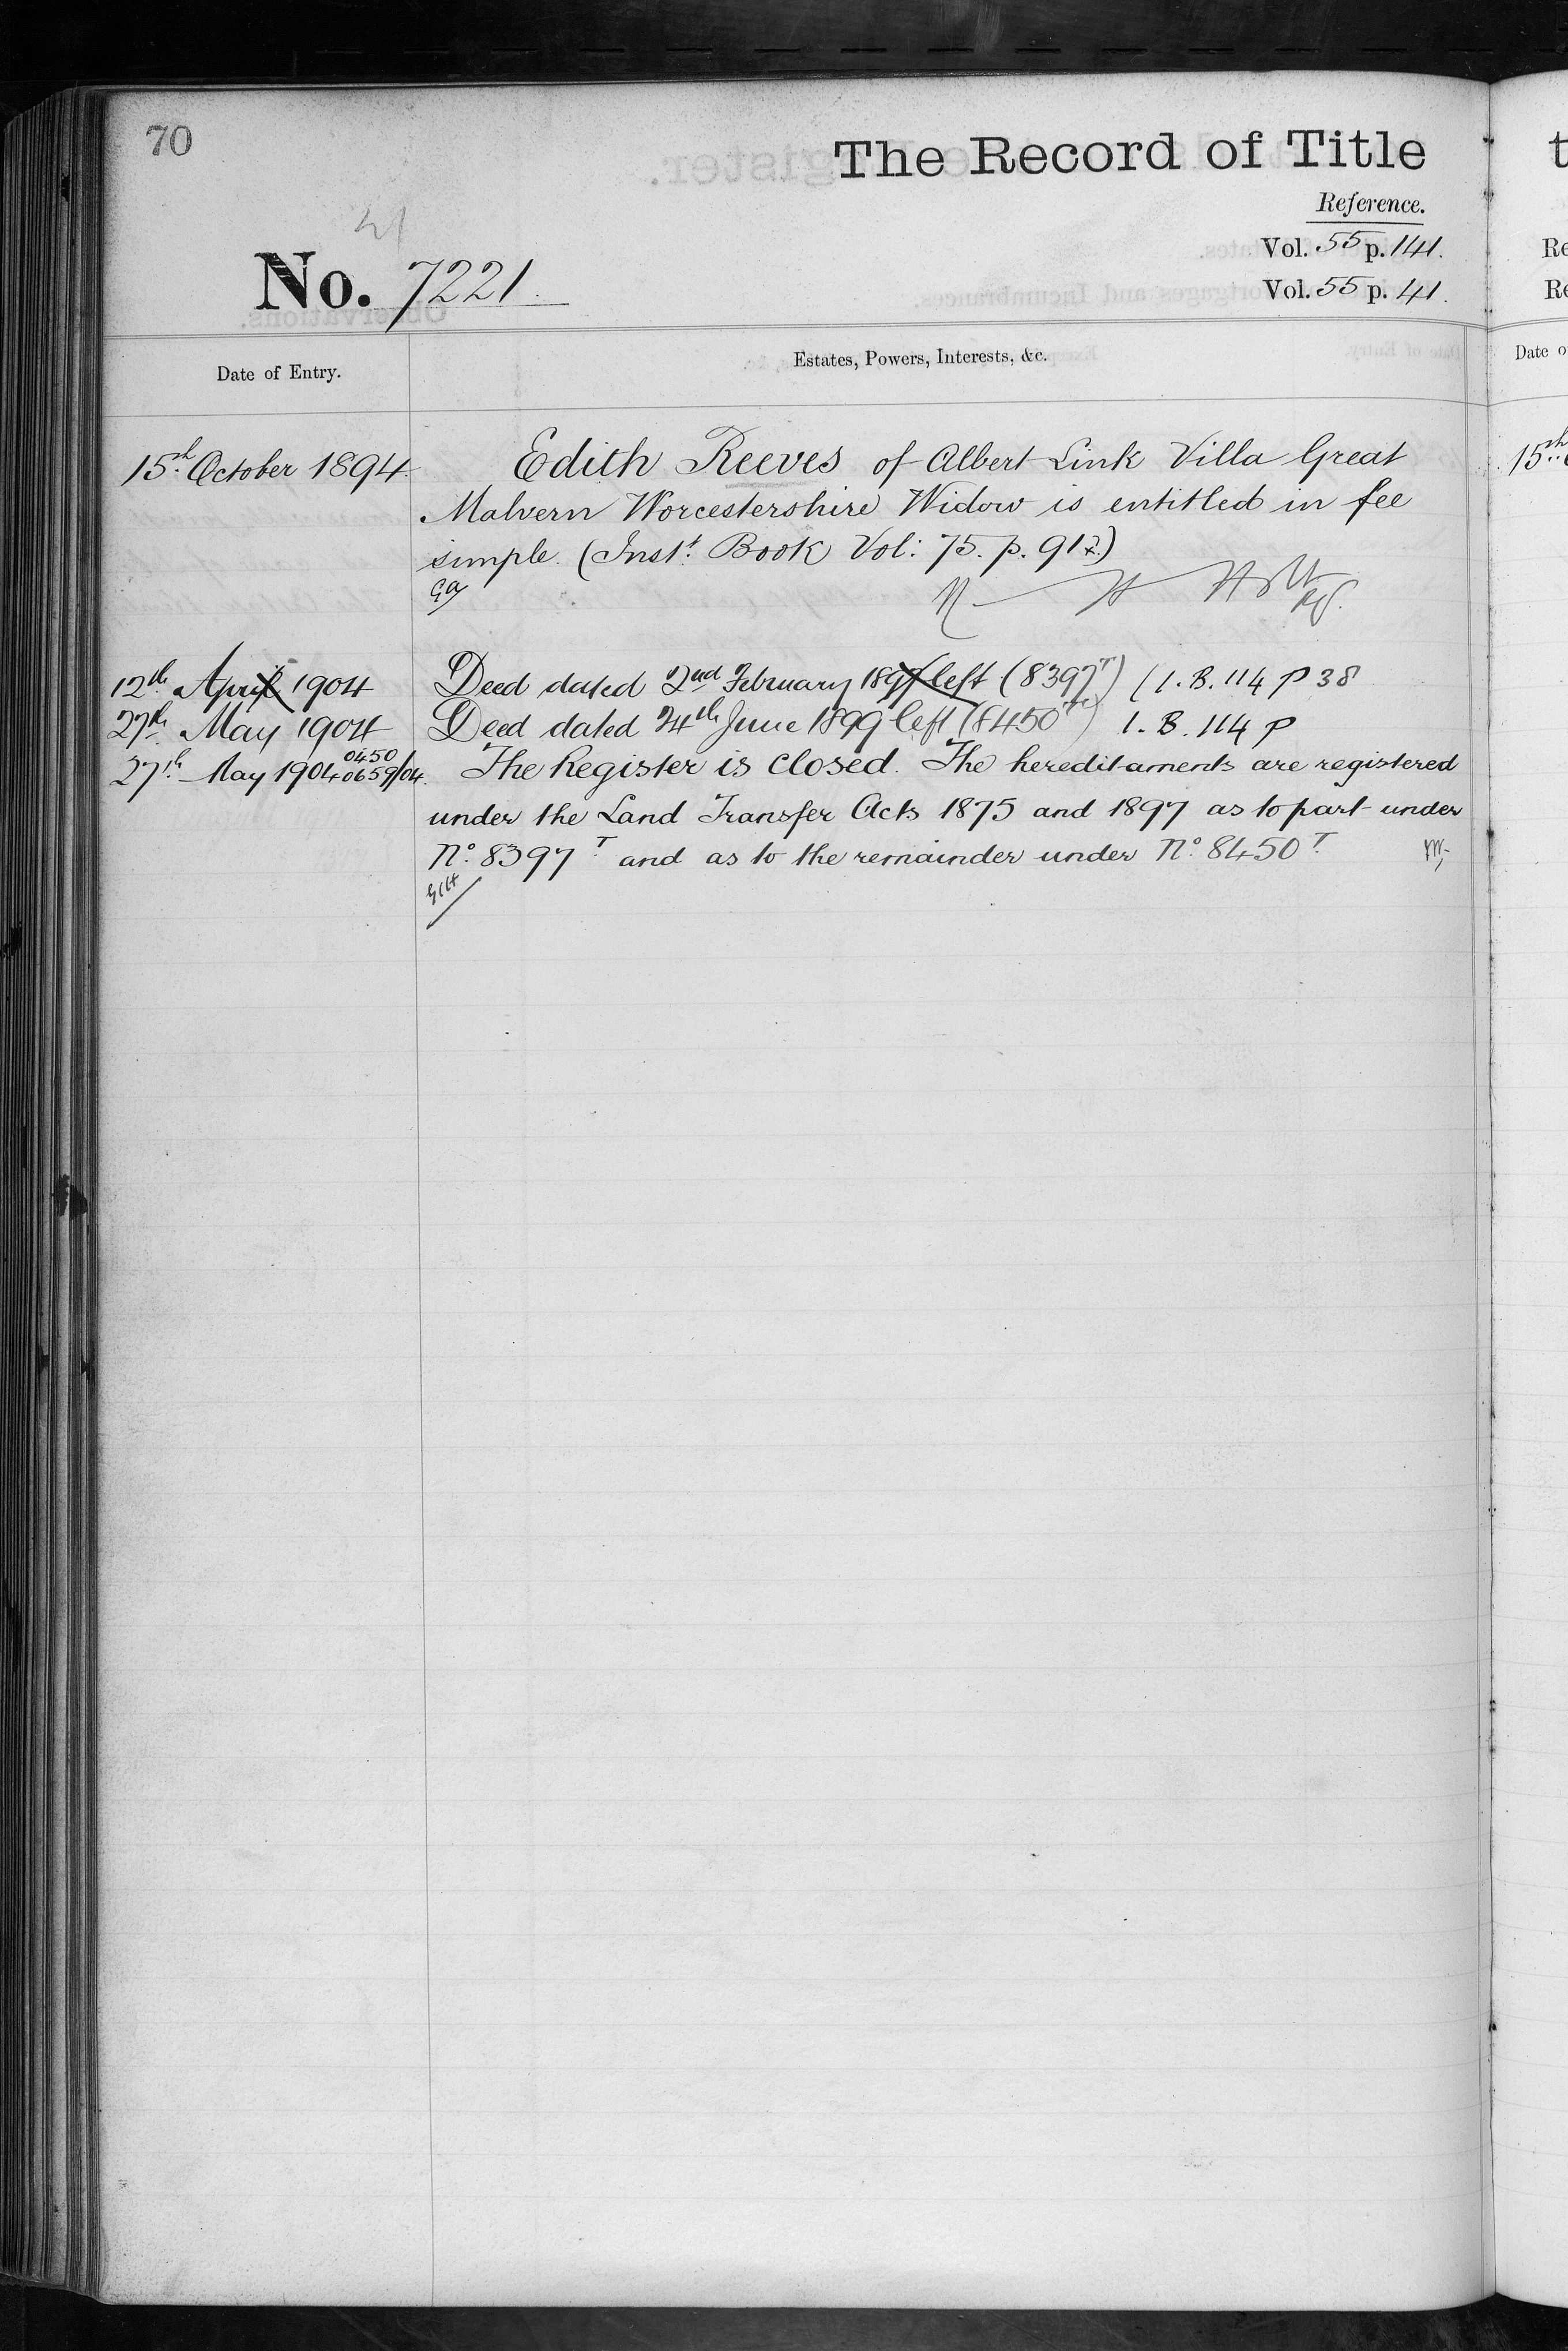 70
The Record of Title
Reference.
Vol. 55 p. 141.
Vol. 55 p. 41.
41
No. 7221.
Date of Entry.
Estates, Powers, Interests, &c.
15th October 1894
Edith Reeves of Albert Link Villa Great
Malvern Worcestershire Widow is entitled in fee
simple. (Inst. Book Vol: 75. p. 91)
12th April 1904
Deed dated 2nd February 1897 left (8397T) (I.B. 114 p 38
27th May 1904
Deed dated 24th June 1899 left (8450T) I.B. 114 p
27th May 1904 0450
0659/04
The Register is closed. The hereditaments are registered
under the Land Transfer Acts 1875 and 1897 as to part under
No. 8397T and as to the remainder under No. 8450T
t
Re
Re
Date o
15th